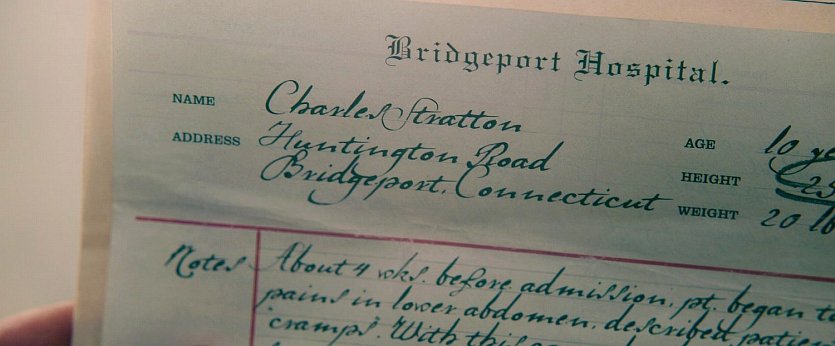 Bridgeport Hospital.
NAME Charles Stratton
ADDRESS Huntington Road
Bridgeport, Connecticut
AGE 10 ye
HEIGHT 25
WEIGHT 20 lb
Notes About 4 wks. before admission, pt. began to
pains in lower abdomen, described patien
"cramps". With this